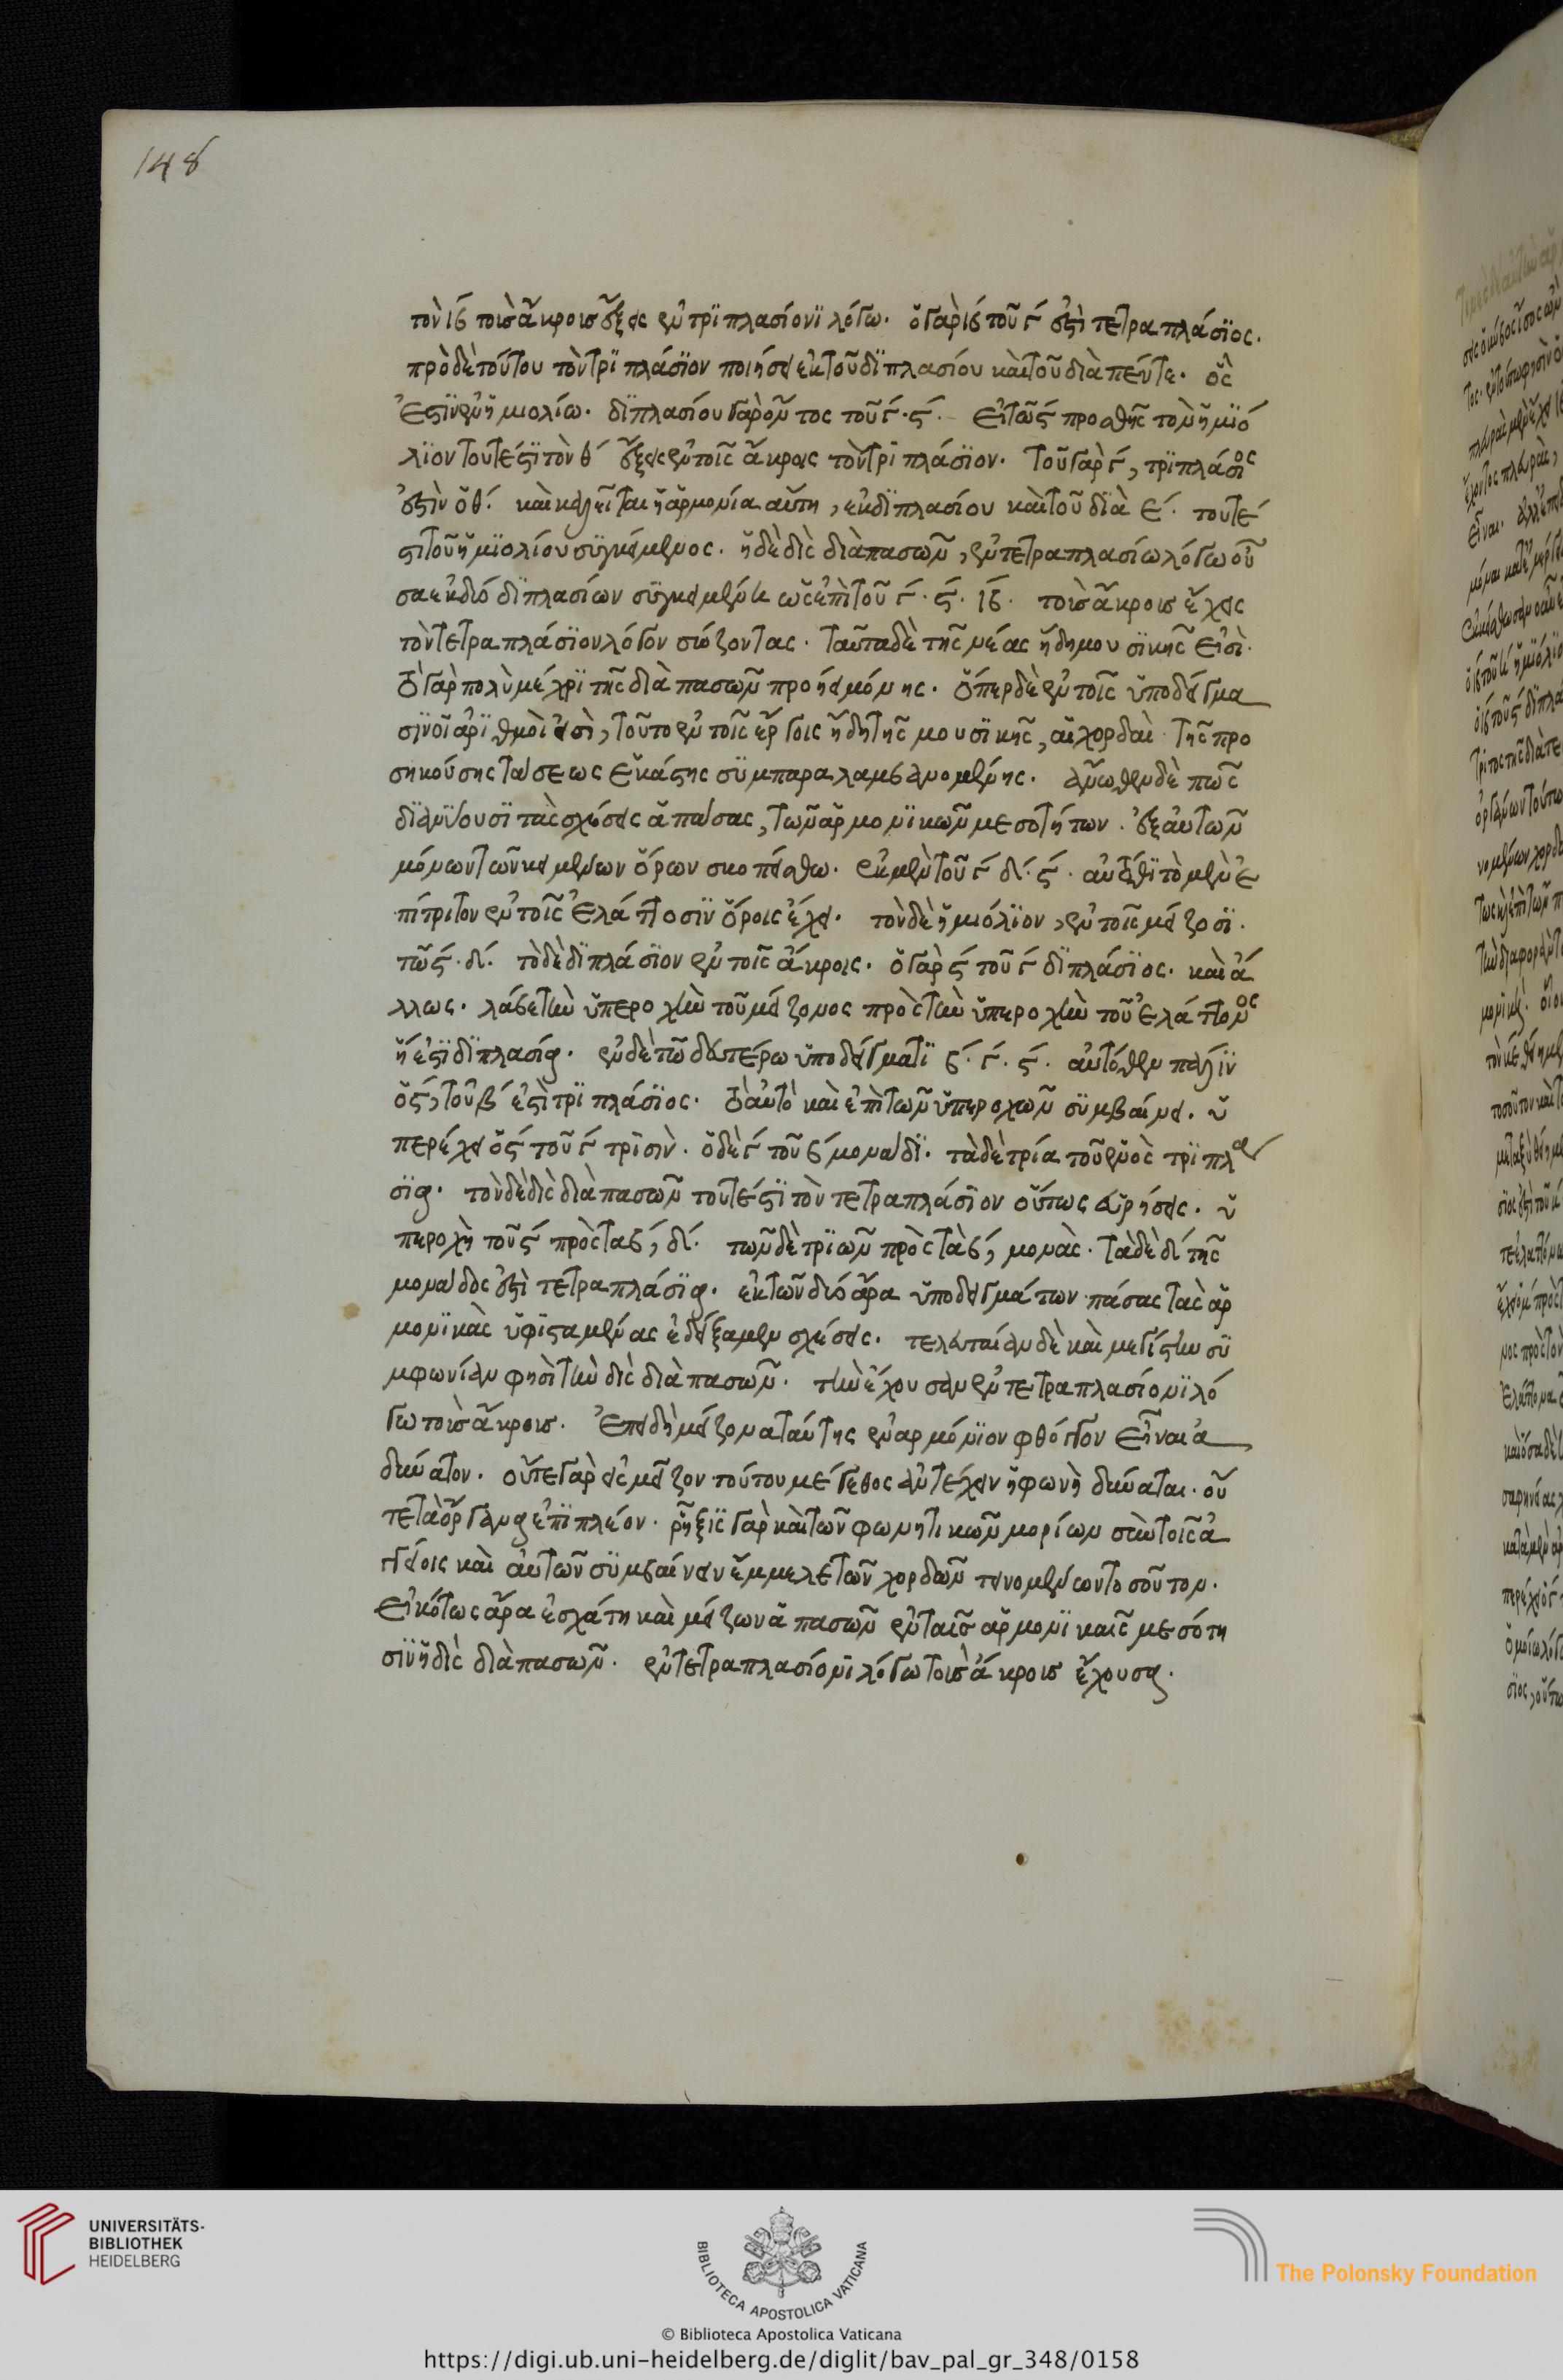 148
τὸν ιβ τοῖς ἄκροις ἕξεις ἐν τριπλασίονι λόγω. ὁ γὰρ ιβ τοῦ γ ἐστὶ τετραπλάσιος.
πρὸ δὲ τούτου τὸν τριπλάσιον ποιήσει ἐκ τοῦ διπλασίου καὶ τοῦ διὰ πέντε. ὅς
ἐστιν ἐν ἡμιολίω. διπλασίου γὰρ ὄντος τοῦ γ. ς. εἰ τῶ ς προσθῆς τὸν ἡμιό
λιον τουτέστι τὸν θ ἕξεις ἐν τοῖς ἄκροις τὸν τριπλάσιον. τοῦ γὰρ γ, τριπλάσιος
ἐστὶν ὁ θ. καὶ καλεῖται ἡ ἁρμονία αὕτη, ἐκ διπλασίου καὶ τοῦ διὰ ε. τουτέ
στι τοῦ ἡμιολίου συγκείμενος. ἡ δὲ δὶς διὰ πασῶν, ἐν τετραπλασίω λόγω οὖ
σα ἐκ δύο διπλασίων συγκειμένη ὡς ἐπὶ τοῦ γ. ς. ιβ. τοῖς ἄκροις ἔχεις
τὸν τετραπλάσιον λόγον σώζοντας. ταῦτα δὲ τῆς νέας ἤδη μουσικῆς εἰσὶ.
τὸ γὰρ πολὺ μέχρι τῆς διὰ πασῶν προήει μόνης. ὅπερ δὲ ἐν τοῖς ὑποδείγμα
σιν οἱ ἀριθμοὶ εἰσὶ, τοῦτο ἐν τοῖς ἔργοις ἤδη τῆς μουσικῆς, αἱ χορδαὶ τῆς προ
σηκούσης τάσεως ἑκάστης συμπαραλαμβανομένης. ἄνωθεν δὲ πῶς
διανύουσι τὰς σχέσεις ἁπάσας, τῶν ἁρμονικῶν μεσοτήτων. ἐξ αὐτῶν
μόνων τῶν κειμένων ὅρων σκοπείσθω. ἐκ μὲν τοῦ γ δ. ς. αὐτόθι τὸ μὲν ἐ
πίτριτον ἐν τοῖς ἐλάττοσιν ὅροις ἔχει. τὸν δὲ ἡμιόλιον, ἐν τοῖς μείζοσι.
τῶ ς. δ. τὸ δὲ διπλάσιον ἐν τοῖς ἄκροις. ὁ γὰρ ς τοῦ γ διπλάσιος. καὶ ἄ
λλως. λάβε τὴν ὑπεροχὴν τοῦ μείζονος πρὸς τὴν ὑπεροχὴν τοῦ ἐλάττονος
ἥ ἐστι διπλασία. ἐν δὲ τῶ δευτέρω ὑποδείγματι β. γ. ς. αὐτόθεν πάλιν
ὁ ς, τοῦ β ἐστὶ τριπλάσιος. τὸ αὐτὸ καὶ ἐπὶ τῶν ὑπεροχῶν συμβαίνει. ὑ
περέχει ὁ ς τοῦ γ τρισὶν. ὁ δὲ γ τοῦ β μονάδι. τὰ δὲ τρία τοῦ ἑνὸς τριπλα
σια. τὸν δὲ δὶς διὰ πασῶν τουτέστι τὸν τετραπλάσιον οὕτως εὑρήσεις. ὑ
περοχὴ τοῦ ς πρὸς τὰ β, δ. τῶν δὲ τριῶν πρὸς τὰ β, μονὰς. τὰ δὲ δ τῆς
μονάδος ἐστὶ τετραπλάσια. ἐκ τῶν δύο ἄρα ὑποδειγμάτων πάσας τὰς ἁρ
μονικὰς ὑφισταμένας ἐδείξαμεν σχέσεις. τελευταίαν δὲ καὶ μεγίστην συ
μφωνίαν φησὶ τὴν δὶς διὰ πασῶν. τὴν ἔχουσαν ἐν τετραπλασίονι λό
γω τοῖς ἄκροις. ἐπειδὴ μείζονα ταύτης ἐναρμόνιον φθόγγον εἶναι ἀ
δύνατον. οὔτε γὰρ εἰς μεῖζον τούτου μέγεθος ἀντέχειν ἡ φωνὴ δύναται. οὔ
τε τὰ ὄργανα ἐπιπλέον. ῥῆξις γὰρ καὶ τῶν φωνητικῶν μορίων σὺν τοῖς ἀ
γγείοις καὶ αὐτῶν συμβαίνειν ἔμμελε τῶν χορδῶν τεινομένων τοσοῦτον.
εἰκότως ἄρα ἐσχάτη καὶ μείζων ἁπασῶν ἐν ταῖς ἁρμονικαῖς μεσότη
σιν ἡ δὶς διὰ πασῶν. ἐν τετραπλασίονι λόγω τοῖς ἄκροις ἔχουσα.
UNIVERSITÄTS-
BIBLIOTHEK
HEIDELBERG
BIBLIOTECA APOSTOLICA VATICANA
The Polonsky Foundation
© Biblioteca Apostolica Vaticana
https://digi.ub.uni-heidelberg.de/diglit/bav_pal_gr_348/0158